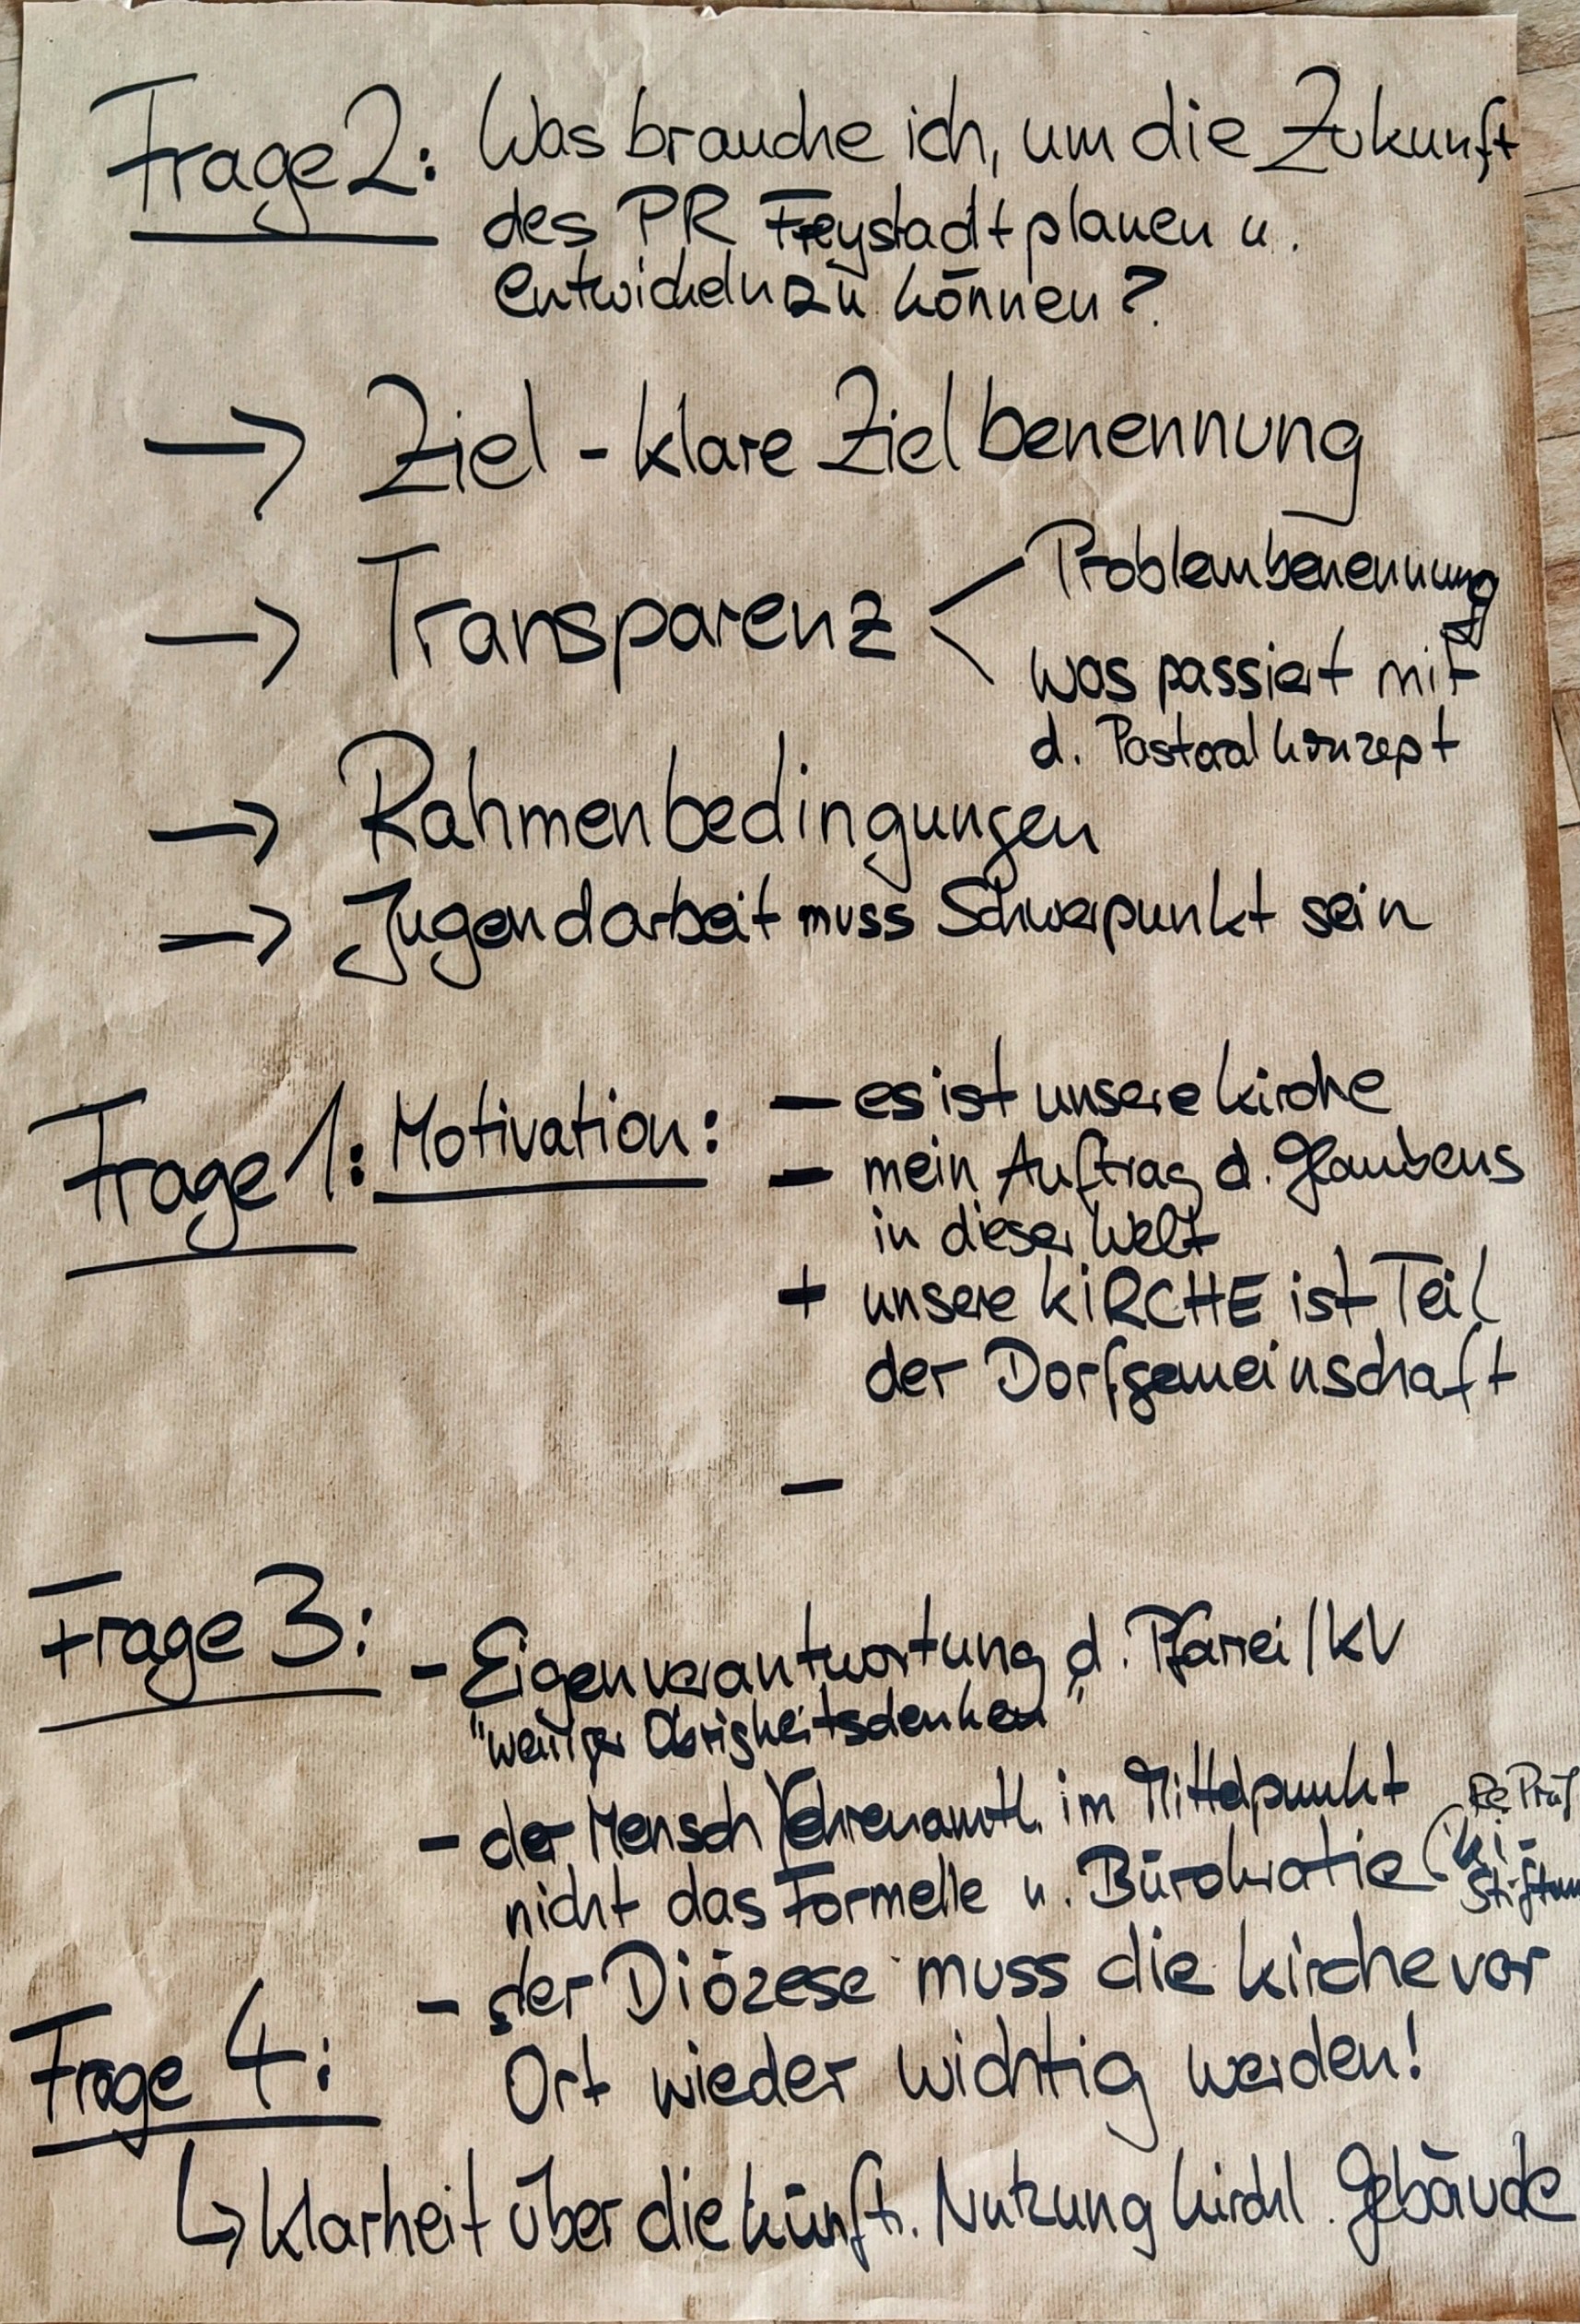 Frage 2: Was brauche ich, um die Zukunft
des PR Freystadt planen u.
entwickeln zu können?
→ Ziel - klare Zielbenennung
→ Transparenz < Problembenennung
was passiert mit
d. Pastoralkonzept
→ Rahmenbedingungen
→ Jugendarbeit muss Schwerpunkt sein
Frage 1: Motivation: - es ist unsere Kirche
- mein Auftrag d. Glaubens
in dieser Welt
+ unsere KiRCHE ist Teil
der Dorfgemeinschaft
-
Frage 3: - Eigenverantwortung d. Pfarrei / KV
"weniger Obrigkeitsdenken"
- der Mensch / ehrenamtl. im Mittelpunkt
nicht das Formelle u. Bürokratie (
Ki-
- der Diözese muss die Kirche vor
Ort wieder wichtig werden!
Frage 4:
↳ Klarheit über die künft. Nutzung kirchl. Gebäude